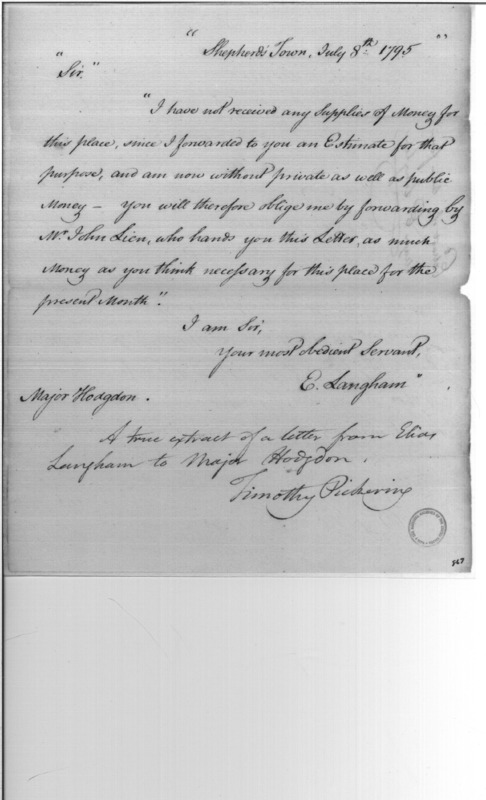 "Shepherds Town, July 8th. 1795" ""
"Sir,"
"I have not received any Supplies of Money for
this place, since I forwarded to you an Estimate for that
purpose, and am now without private as well as public
Money — you will therefore oblige me by forwarding by
Mr. John Lien, who hands you this Letter, as much
Money as you think necessary for this place for the
present Month".
I am Sir,
Your most obedient Servant,
E. Langham"
Major Hodgdon.
A true extract of a letter from Elias
Langham to Major Hodgdon.
Timothy Pickering